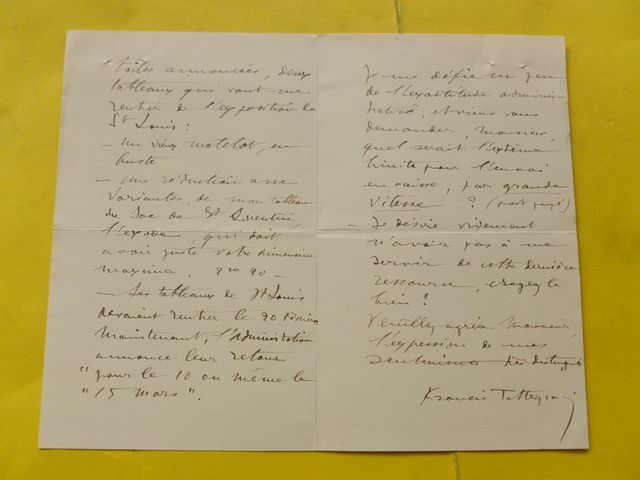 toiles annoncées, deux
tableaux qui vont me
rentrer de l'exposition de
St Louis :
- Un vieux matelot, en
buste
- une réduction avec
variantes, de mon tableau
du Sac de St Quentin,
l'exode, qui doit
avoir juste votre dimension
maxima, 2m 90 -
- Les tableaux de St Louis
devaient rentrer le 20 février
Maintenant, l'Administration
annonce leur retour
"pour le 10 ou même le
"15 mars".
Je me défie un peu
de l'exactitude adminis-
trative, et viens vous
demander, Monsieur,
quel serait l'extrême
limite pour l'envoi
en caisse, par grande
vitesse ? (port payé)
- Je désire vivement
n'avoir pas à me
servir de cette dernière
ressource, croyez le
bien !
Veuillez agréer Monsieur
l'expression de mes
sentiments très distingués
Francis Tattegrain